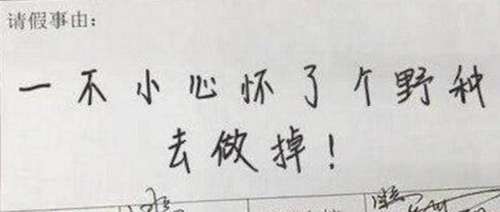 请假事由：
一不小心怀了个野种
去做掉！